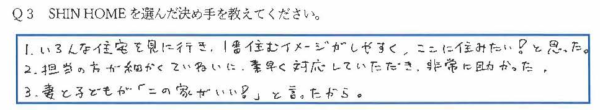 Q3 SHIN HOMEを選んだ決め手を教えてください。
1. いろんな住宅を見に行き、1番住むイメージがしやすく、ここに住みたい!と思った。
2. 担当の方が細かくていねいに、素早く対応していただき、非常に助かった。
3. 妻と子どもが「この家がいい!」と言ったから。